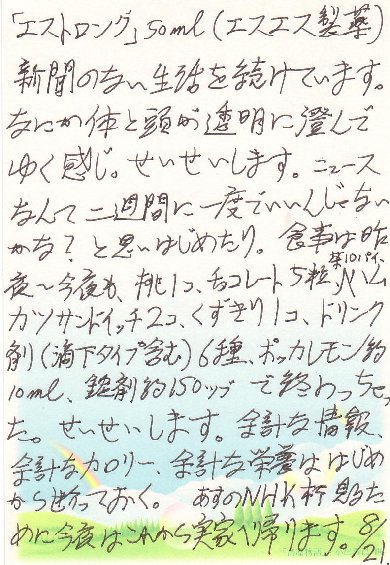 「エストロング」50ml(エスエス製薬)
新聞のない生活を続けています。
なにか体と頭が透明に澄んで
ゆく感じ。せいせいします。ニュース
なんて二週間に一度でいいんじゃない
かな?と思いはじめたり。食事は昨
夜〜今夜も、桃1コ、チョコレート5粒、ハム
カツサンドイッチ2コ、くずきり1コ、ドリンク
剤(滴下タイプ含む)6種、ポッカレモン約
10ml、錠剤約150ツブで終わっちゃっ
た。せいせいします。余計な情報、
余計なカロリー、余計な栄養ははじめ
から断っておく。あすのNHK杯見るた
めに今夜はこれから実家へ帰ります。8/21.